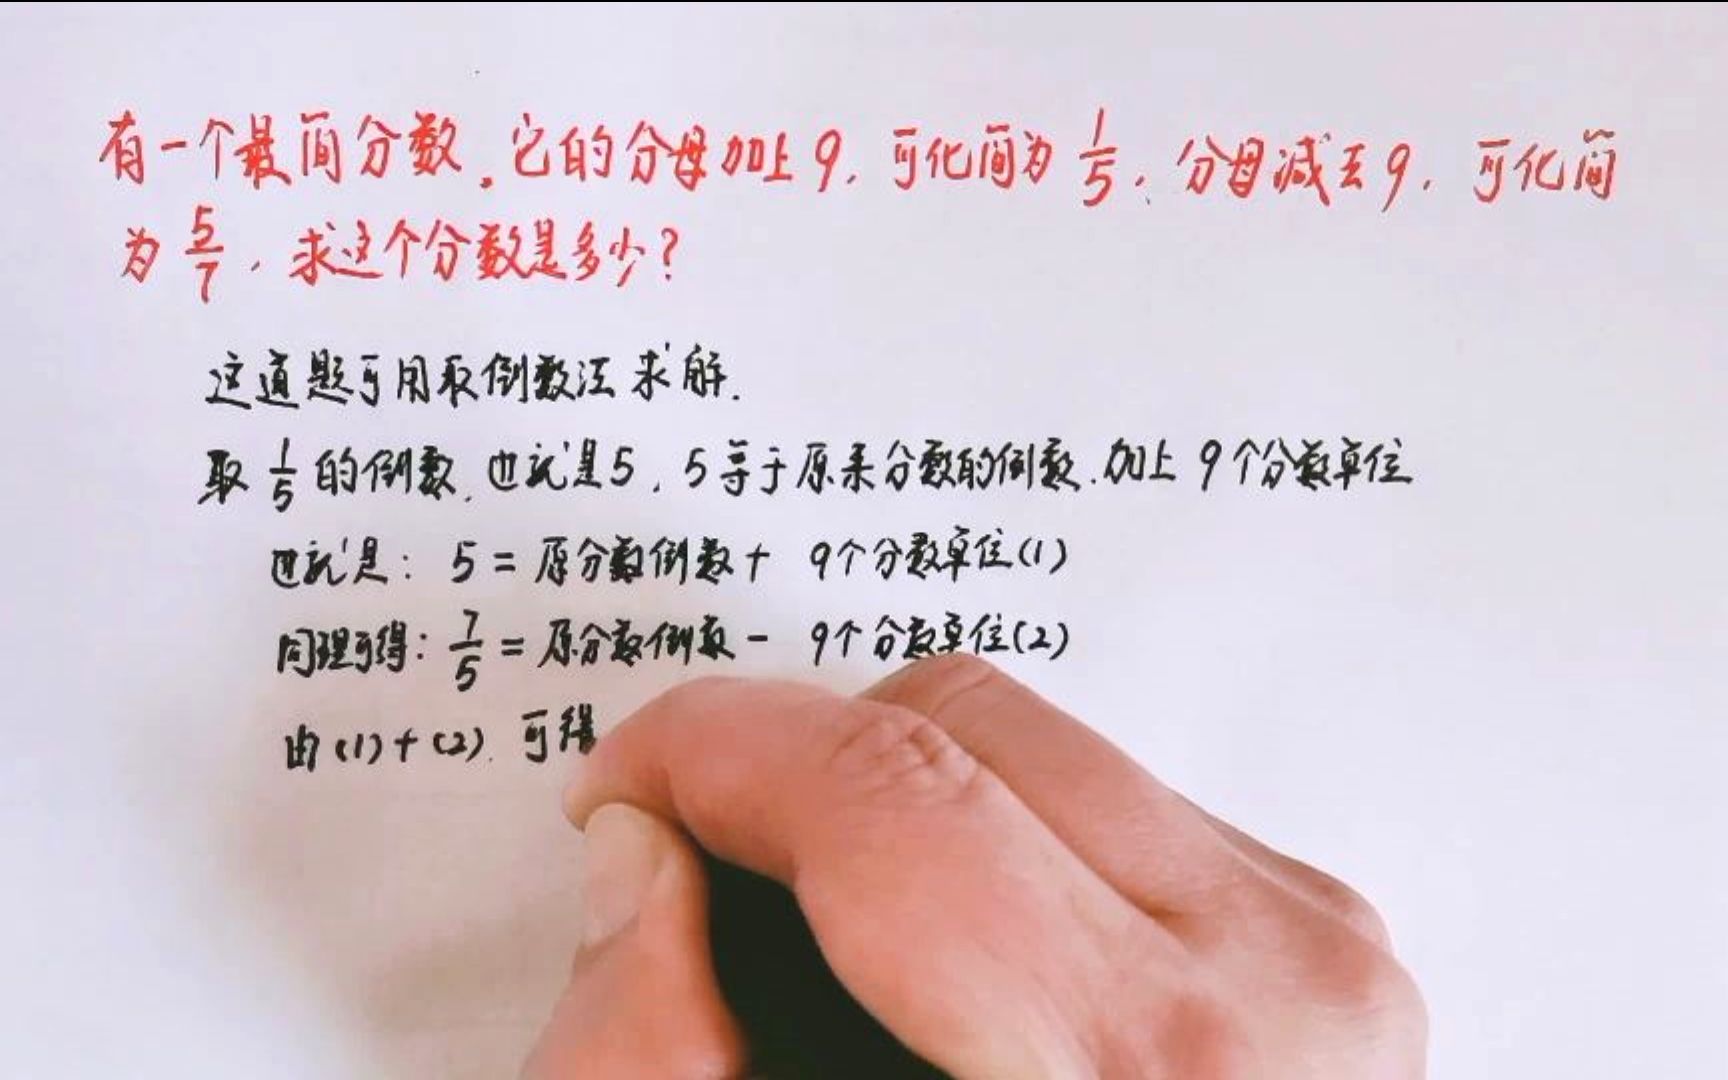 有一个最简分数,它的分母加上9,可化简为1/5,分母减去9,可化简
为5/7,求这个分数是多少?
这道题可用取倒数法求解.
取1/5的倒数,也就是5,5等于原来分数的倒数,加上9个分数单位
也就是: 5=原分数倒数+ 9个分数单位(1)
同理可得: 7/5=原分数倒数- 9个分数单位(2)
由(1)+(2),可得